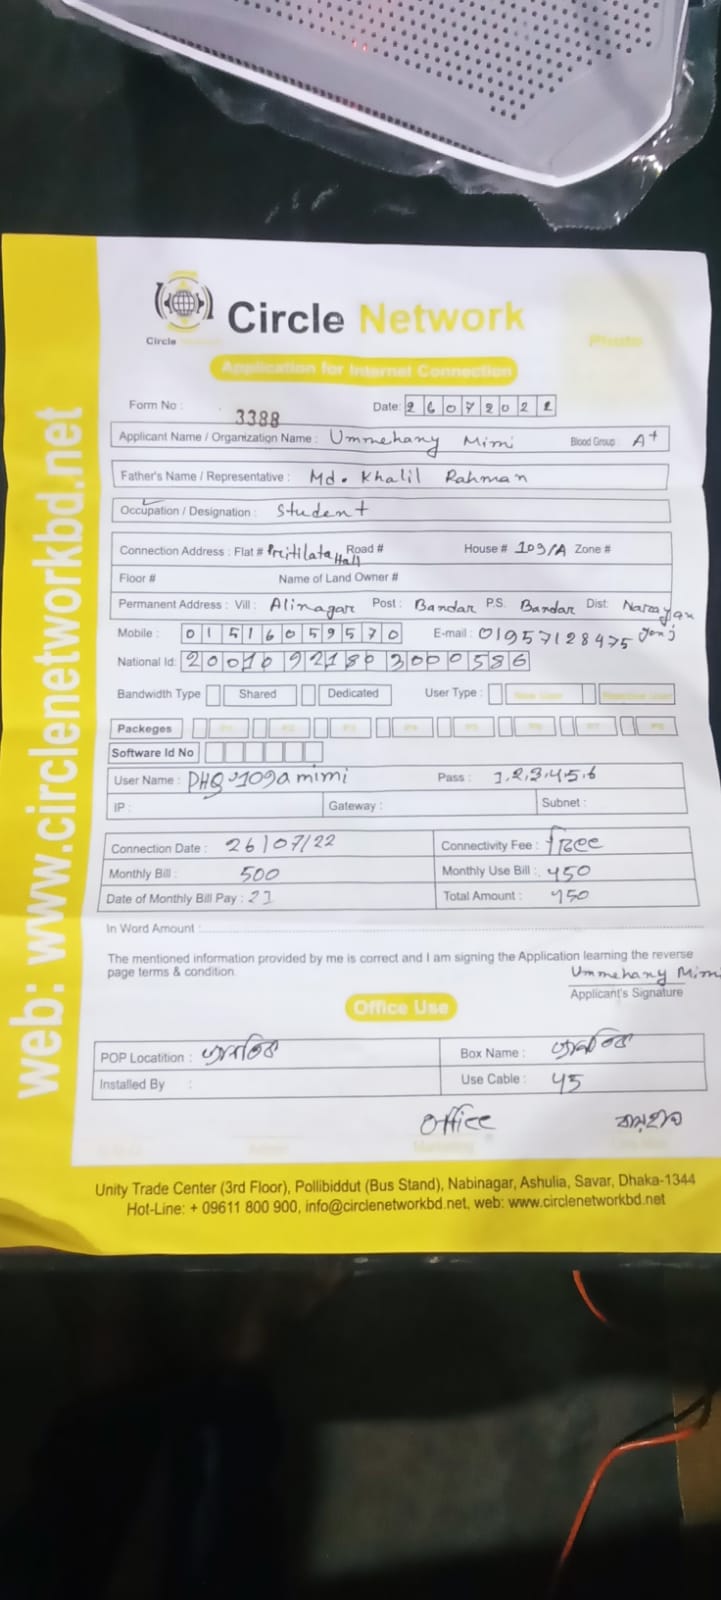 Circle Network
Circle
Application for Internet Connection
Photo
Form No : 3388 Date: 26072022
Applicant Name / Organization Name : Ummehany Mimi Blood Group : A+
Father's Name / Representative : Md. Khalil Rahman
Occupation / Designation : Student
Connection Address : Flat # Pritilata Hall Road # House # 109/A Zone #
Floor # Name of Land Owner #
Permanent Address : Vill : Alinagar Post : Bandar P.S. Bandar Dist: Narayanganj
Mobile : 01516059570 E-mail : 01957128475
National Id: 20016921803000586
Bandwidth Type Shared Dedicated User Type :
Packeges
Software Id No
User Name : PHQ-109amimi Pass : 1,2,3,4,5,6
IP : Gateway : Subnet :
Connection Date : 26/07/22 Connectivity Fee : free
Monthly Bill : 500 Monthly Use Bill : 450
Date of Monthly Bill Pay : 21 Total Amount : 450
In Word Amount :
The mentioned information provided by me is correct and I am signing the Application learning the reverse
page terms & condition.
Ummehany Mimi
Applicant's Signature
Office Use
POP Locatition : Box Name :
Installed By : Use Cable : 45
Office
Unity Trade Center (3rd Floor), Pollibiddut (Bus Stand), Nabinagar, Ashulia, Savar, Dhaka-1344
Hot-Line: + 09611 800 900, info@circlenetworkbd.net, web: www.circlenetworkbd.net
web: www.circlenetworkbd.net